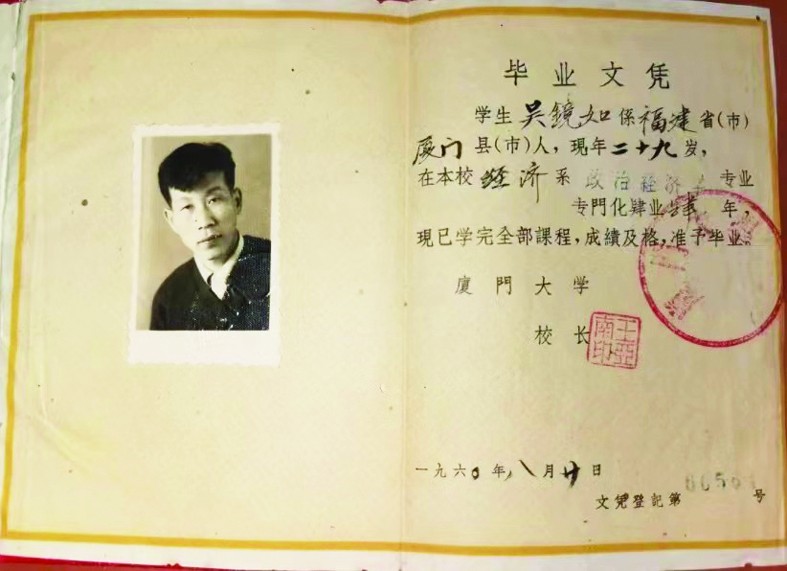 毕业文凭
学生吴鏡如係福建省(市)
厦门县(市)人，現年二十九岁，
在本校经济系政治经济学专业
专門化肄业年，
現已学完全部課程，成績及格，准予毕业。
廈門大学
校长
王亞南印
一九六〇年八月廿日
文凭登記第号